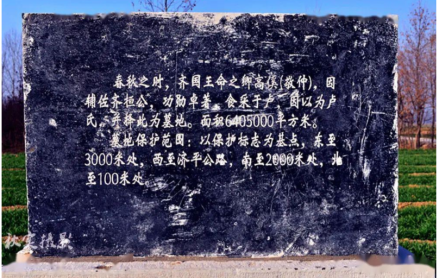 春秋之时，齐国王命之卿高傒(敬仲)，因
辅佐齐桓公，功勋卓著，食采于卢，因以为卢
氏，并择此为墓地。面积6405000平方米。
墓地保护范围：以保护标志为基点，东至
3000米处，西至济平公路，南至2000米处，北
至100米处。
摄影